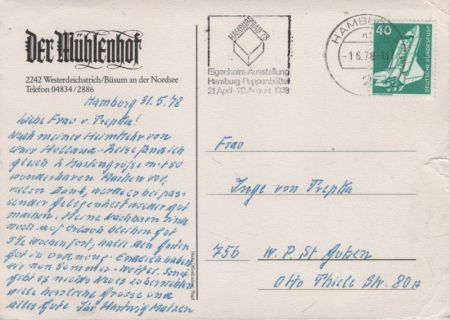 Der Mühlenhof
2242 Westerdeichstrich/Büsum an der Nordsee
Telefon 04834/2886
Hamburg 31.5.78
Liebe Frau v. Trepka!
Nach meiner Heimkehr von
einer Holland-Reise fand ich
gleich 2 Kartengrüße mit so
wunderbaren Marken vor,
vielen Dank, werde es bei pas-
sender Gelegenheit wieder gut
machen. Meine Nachbarn sind
noch auf Urlaub bleiben gut
5 ½ Wochen fort, halte den Garten
gut in Ordnung. Endlich haben
wir nun Sommer-Wetter. Sonst
gibt es nichts Neues zu berichten
viele herzliche Grüße und
alles Gute Ihr Hartwig
HAMBURGBAU '78
Eigenheim-Ausstellung
Hamburg-Poppenbüttel
21.April-20.August 1978
HAMBURG
-1.6.78
40
DEUTSCHE BUNDESPOST
Frau
Inge von Trepka
756 W.P. St
Otto Thiele Str.